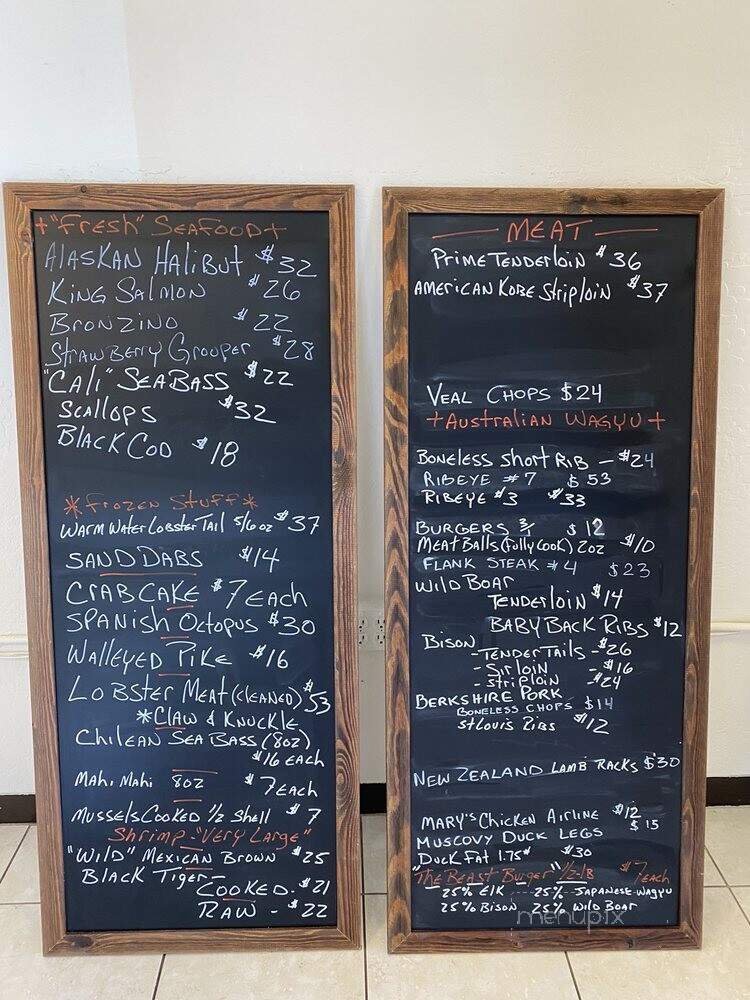 +"Fresh" SEAFOOD+
ALASKAN HALIBUT $32
KING SALMON $26
BRONZINO $22
STRAWBERRY GROUPER $28
"CALI" SEABASS $22
SCALLOPS $32
BLACK COD $18
*FROZEN STUFF*
WARM WATER LOBSTER TAIL 5/6 oz $37
SAND DABS $14
CRAB CAKE $7 EACH
SPANISH OCTOPUS $30
WALLEYED PIKE $16
LOBSTER MEAT (CLEANED) $53
*CLAW & KNUCKLE
CHILEAN SEA BASS (8oz)
$16 EACH
MAHI MAHI 8oz $7 EACH
MUSSELS COOKED 1/2 SHELL $7
Shrimp-"VERY LARGE"
"WILD" MEXICAN BROWN $25
BLACK TIGER-
COOKED- $21
RAW - $22
MEAT
PRIME TENDERLOIN $36
AMERICAN KOBE STRIPLOIN $37
VEAL CHOPS $24
+AUSTRALIAN WAGYU+
BONELESS SHORT RIB - $24
RIBEYE #7 $53
RIBEYE #3 $33
BURGERS $12
MEATBALLS (FULLY COOK) 2oz $10
FLANK STEAK #4 $23
WILD BOAR
TENDERLOIN $14
BABY BACK RIBS $12
BISON
-TENDER TAILS- $26
-SIRLOIN - $16
-STRIPLOIN $24
BERKSHIRE PORK
BONELESS CHOPS $14
ST LOUIS RIBS $12
NEW ZEALAND LAMB RACKS $30
MARY'S CHICKEN AIRLINE $12
MUSCOVY DUCK LEGS $15
DUCK FAT 1.75# $30
"THE BEAST BURGER" 1/2-lB $7 EACH
25% ELK 25% JAPANESE WAGYU
25% BISON 25% WILD BOAR
menupix